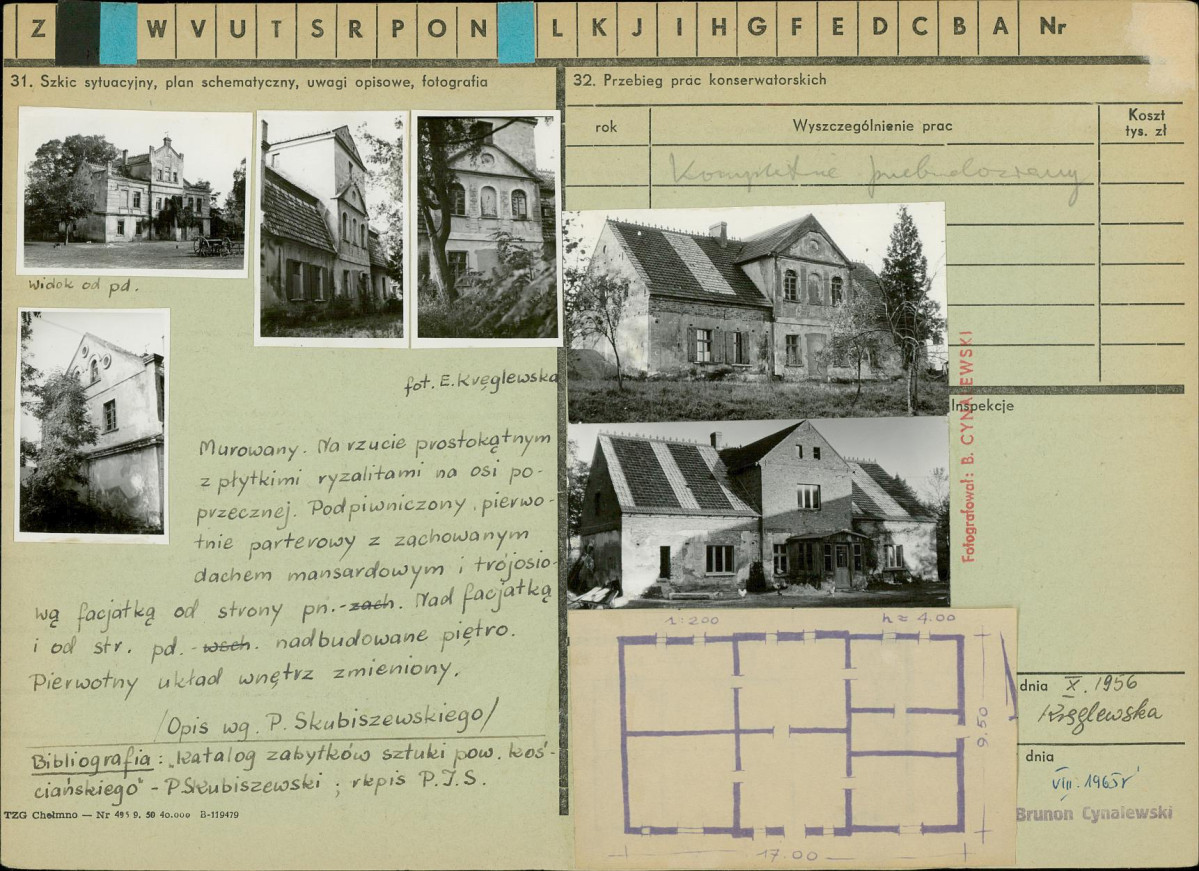 Z W V U T S R P O N L K J I H G F E D C B A Nr
31. Szkic sytuacyjny, plan schematyczny, uwagi opisowe, fotografia
Widok od pd.
fot. E. Kręglewska
Murowany. Na rzucie prostokątnym
z płytkimi ryzalitami na osi po-
przecznej. Podpiwniczony, pierwo-
tnie parterowy z zachowanym
dachem mansardowym i trójosio-
wą facjatką od strony pn.-zach. Nad facjatką
i od str. pd.-wsch. nadbudowane piętro.
Pierwotny układ wnętrz zmieniony.
/Opis wg. P. Skubiszewskiego/
Bibliografia: „Katalog zabytków sztuki pow. koś-
ciańskiego" - P. Skubiszewski ; rkpis P.I.S.
TZG Chełmno — Nr 495 9. 50 40.000 B-119479
32. Przebieg prac konserwatorskich
rok
Wyszczególnienie prac
Koszt
tys. zł
Kompletnie przebudowany
Fotografował: B. CYNALEWSKI
Inspekcje
1:200
h = 4.00
9.50
17.00
dnia X. 1956
Kręglewska
dnia
VIII. 1965 r
Brunon Cynalewski